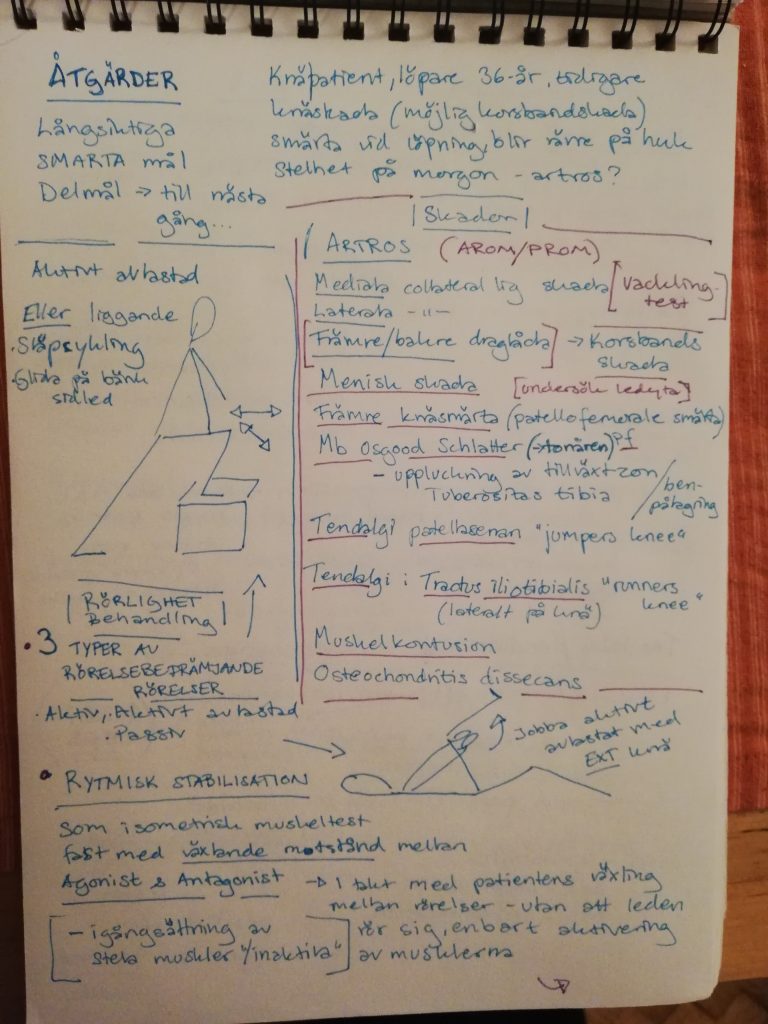 ÅTGÄRDER
Långsiktiga
SMARTA mål
Delmål → till nästa
gång...
Knäpatient, löpare 36-år, tidigare
knäskada (möjlig korsbandskada)
smärta vid löpning, blir värre på huk
Stelhet på morgon - artros?
Aktivt avlastad
Eller liggande
· Släpcykling
· Glida på bänk
sidled
|Skador|
ARTROS (AROM/PROM)
Mediala collateral lig skada [vackling-
test]
Laterala -"-
[Främre/bakre draglåda] → Korsbands
skada
Menisk skada [undersök ledyta]
Främre knäsmärta (patellofemorale smärta)
Mb Osgood Schlatter (→tonåren) pf
- uppluckring av tillväxtzon
Tuberositas tibia / ben-
pålagring
Tendalgi patellasenan "jumpers knee"
Tendalgi i Tractus iliotibialis "runners
(lateralt på knä) knee"
Muskelkontusion
Osteochondritis dissecans
|RÖRLIGHET
Behandling|
· 3 TYPER AV
RÖRELSEBEFRÄMJANDE
RÖRELSER
· Aktiv, · Aktivt avlastad
· Passiv
Jobba aktivt
avlastat med
EXT knä
· RYTMISK STABILISATION
Som isometrisk muskeltest
fast med växlande motstånd mellan
Agonist & Antagonist → I takt med patientens växling
mellan rörelser - utan att leden
rör sig, enbart aktivering
av musklerna
[- igångsättning av
stela muskler "/inaktiva"]